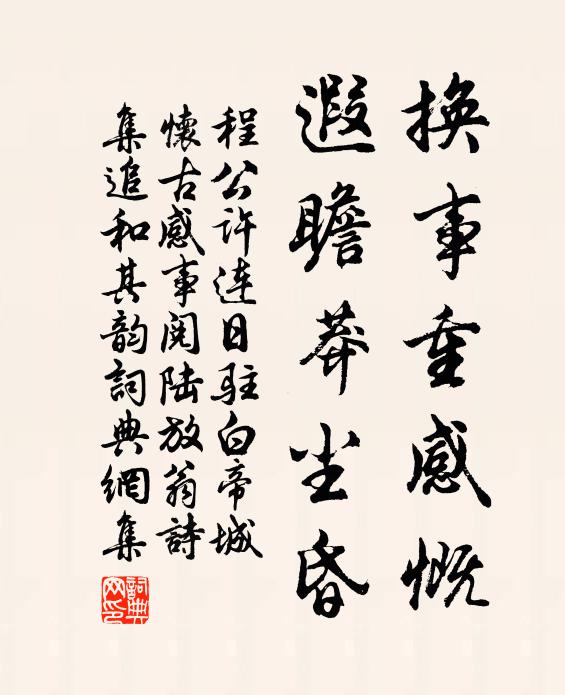 换事重感慨
遐瞻莽尘昏
程公许连日驻白帝城
怀古感事阅陆放翁诗
集追和其韵词典網集
詞典網印